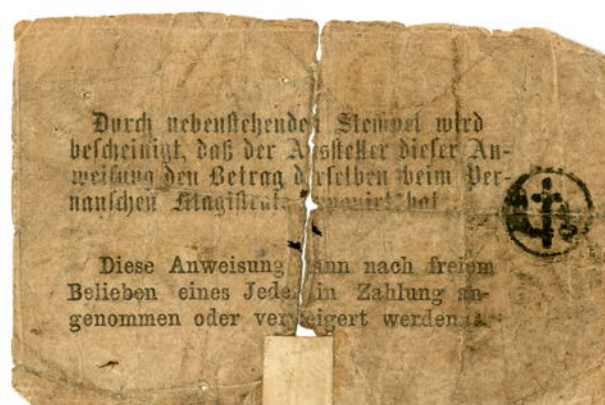 Durch nebenstehenden Stempel wird
bescheinigt, daß der Aussteller dieser An-
weisung den Betrag derselben beim Per-
nauschen Magistrate hat
Diese Anweisung kann nach freiem
Belieben eines Jeden in Zahlung an-
genommen oder verweigert werden.